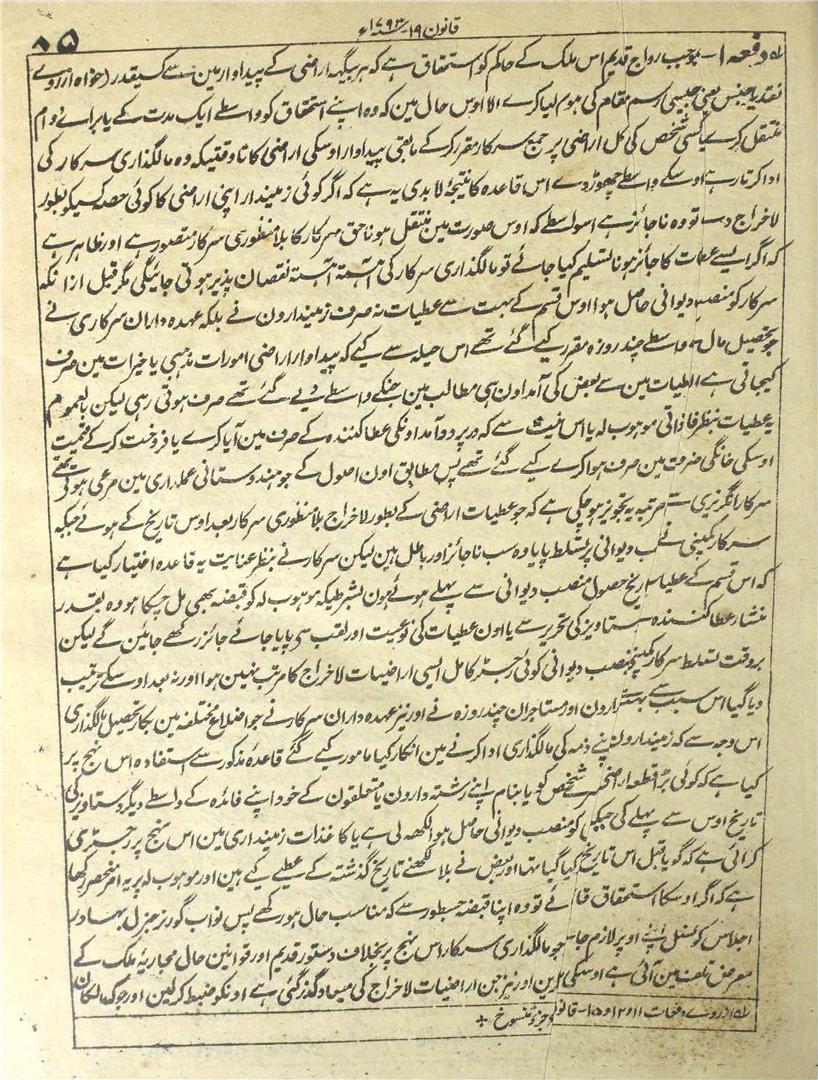 قانون ۱۹ سنہ ۱۷۹۳ء
۸۵
دفعہ ۱ - بموجب رواج قدیم اس ملک کے حاکم کو استحقاق ہے کہ ہر بیگہہ اراضی کے پیداوار مین سے کسیقدر (خواہ ازروے
نقد یا جنس یعنی جیسی رسم مقام کی ہو) لیا کرے الا اوس حال مین کہ وہ اپنے استحقاق کو واسطے ایک مدت کے یا براے دوام
منتقل کرے یا کسی شخص کی کل اراضی پر جمع سرکار مقرر کرکے مابقی پیداوار اوسکی اراضی کا تا وقتیکہ وہ مالگذاری سرکار کی
ادا کرتا رہے اوسکے واسطے چھوڑ دے اس قاعدہ کا نتیجۂ لابدی یہ ہے کہ اگر کوئی زمیندار اپنی اراضی کا کوئی حصہ کسیکو بطور
لاخراج دے تو وہ ناجائز ہے اسواسطے کہ اوس صورت مین منتقل ہونا حق سرکار کا بلا منظوری سرکار متصور ہے اور ظاہر ہے
کہ اگر ایسے عطیات کا جائز ہونا تسلیم کیا جائے تو مالگذاری سرکار کی آہستہ آہستہ نقصان پذیر ہوتی جائیگی مگر قبل ازانکہ
سرکار کو منصب دیوانی حاصل ہوا اوس قسم کے بہت سے عطیات نہ صرف زمیندارون نے بلکہ عہدہ داران سرکاری نے
جو تحصیل مال کے واسطے چند روزہ مقرر کیے گئے تھے اس حیلہ سے کیے کہ پیداوار اراضی امورات مذہبی یا خیرات مین صرف
کیجاتی ہے العطیات مین سے بعض کی آمد اون ہی مطالب مین جنکے واسطے دیے گئے تھے صرف ہوتی رہی لیکن بالعموم
یہ عطیات بنظر فائدہ ذاتی موہوب لہ یا اس نیت سے کہ درپردہ آمد اونکی عطا کنندہ کے صرف مین آیا کرے یا فروخت کرکے قیمت
اوسکی خانگی ضرورت مین صرف ہوا کرے کیے گئے تھے پس مطابق اون اصول کے جو ہندوستانی عملداری مین مرعی ہوتے تھے
سرکار انگریزی سے مرتبہ یہ تجویز ہو چکی ہے کہ جو عطیات اراضی کے بطور لاخراج بلا منظوری سرکار بعد اوس تاریخ کے ہوئے جبکہ
سرکار کمپنی نے منصب دیوانی پر تسلط پایا وہ سب ناجائز اور باطل ہین لیکن سرکار نے بنظر عنایت یہ قاعدہ اختیار کیا ہے
کہ اس قسم کے عطیات تاریخ حصول منصب دیوانی سے پہلے ہوئے ہون بشرطیکہ موہوب لہ کو قبضہ بھی مل چکا ہو وہ بقدر
منشاء عطا کنندہ دستاویز کی تحریر سے یا اون عطیات کی نوعیت اور لقب سے پایا جائے جائز رکھے جائین گے لیکن
بروقت تسلط سرکار کمپنی بمنصب دیوانی کوئی رجسٹر کامل ایسی اراضیات لاخراج کا مرتب نہین ہوا اور نہ بعد اوسکے ترتیب
دیا گیا اس سبب سے بہت زمیندارون اور مستاجران چند روزہ نے اور نیز عہدہ داران سرکار نے جو اضلاع مختلفہ مین بکار تحصیل مالگذاری
اس وجہ سے کہ زمیندارون نے اپنے ذمہ کی مالگذاری ادا کرنے مین انکار کیا مامور کیے گئے قاعدۂ مذکور سے استفادہ اس نہج پر
کیا ہے کہ کوئی بڑا قطعہ اراضی کسی شخص کو یا بنام اپنے رشتہ دارون یا متعلقون کے خود اپنے فائدہ کے واسطے دیکر دستاویز کی
تاریخ اوس سے پہلے کی جبکہ کمپنی کو منصب دیوانی حاصل ہوا لکھہ لی ہے یا کاغذات زمینداری مین اس نہج پر رجسٹری
کرائی ہے کہ گویا قبل اس تاریخ کیا گیا تھا اور بعض نے بلا لکھنے تاریخ گذشتہ کے عطیے کیے ہین اور موہوب لہ پر یہ امر منحصر رکھا
ہے کہ اگر اوسکا استحقاق قا ئے تو وہ اپنا قبضہ جسطور سے کہ مناسب حال ہو رکھے پس نواب گورنر جنرل بہادر
اجلاس کونسل اپنے اوپر لازم جا جو مالگذاری سرکار اس نہج پر بخلاف دستور قدیم اور قوانین حال مجاریۂ ملک کے
معرض تلف مین آئی ہے اوسکی لین اور نیز جن اراضیات لاخراج کی میعاد گذر گئی ہے اونکو ضبط کرلین اور جو کہ مالکان
ازروے دفعات ۱۱ و ۱۲ و ۱۵ - قانون جزو منسوخ